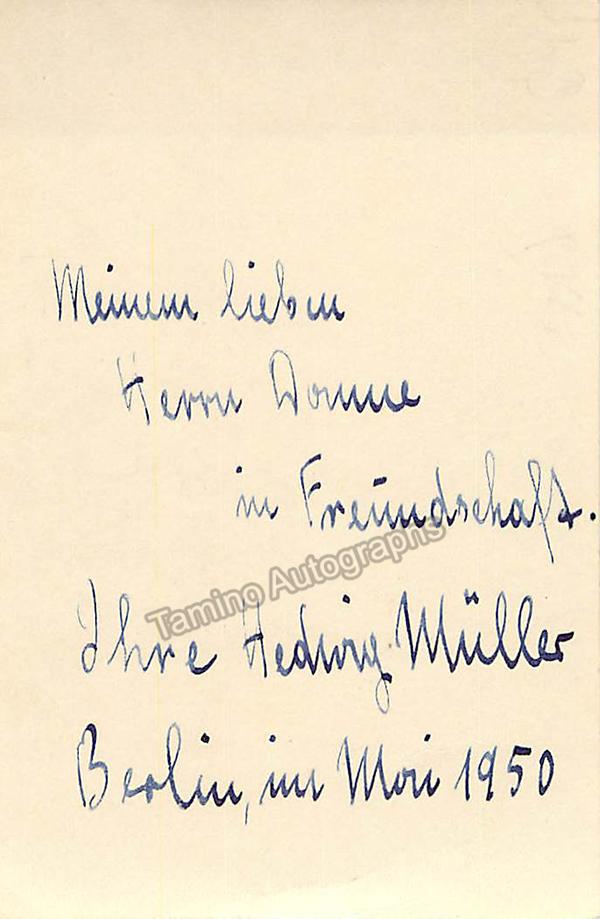 Meinem lieben
Herrn Domme
in Freundschaft.
Tamino Autographs
Ihre Hedwig Müller
Berlin, im Mai 1950